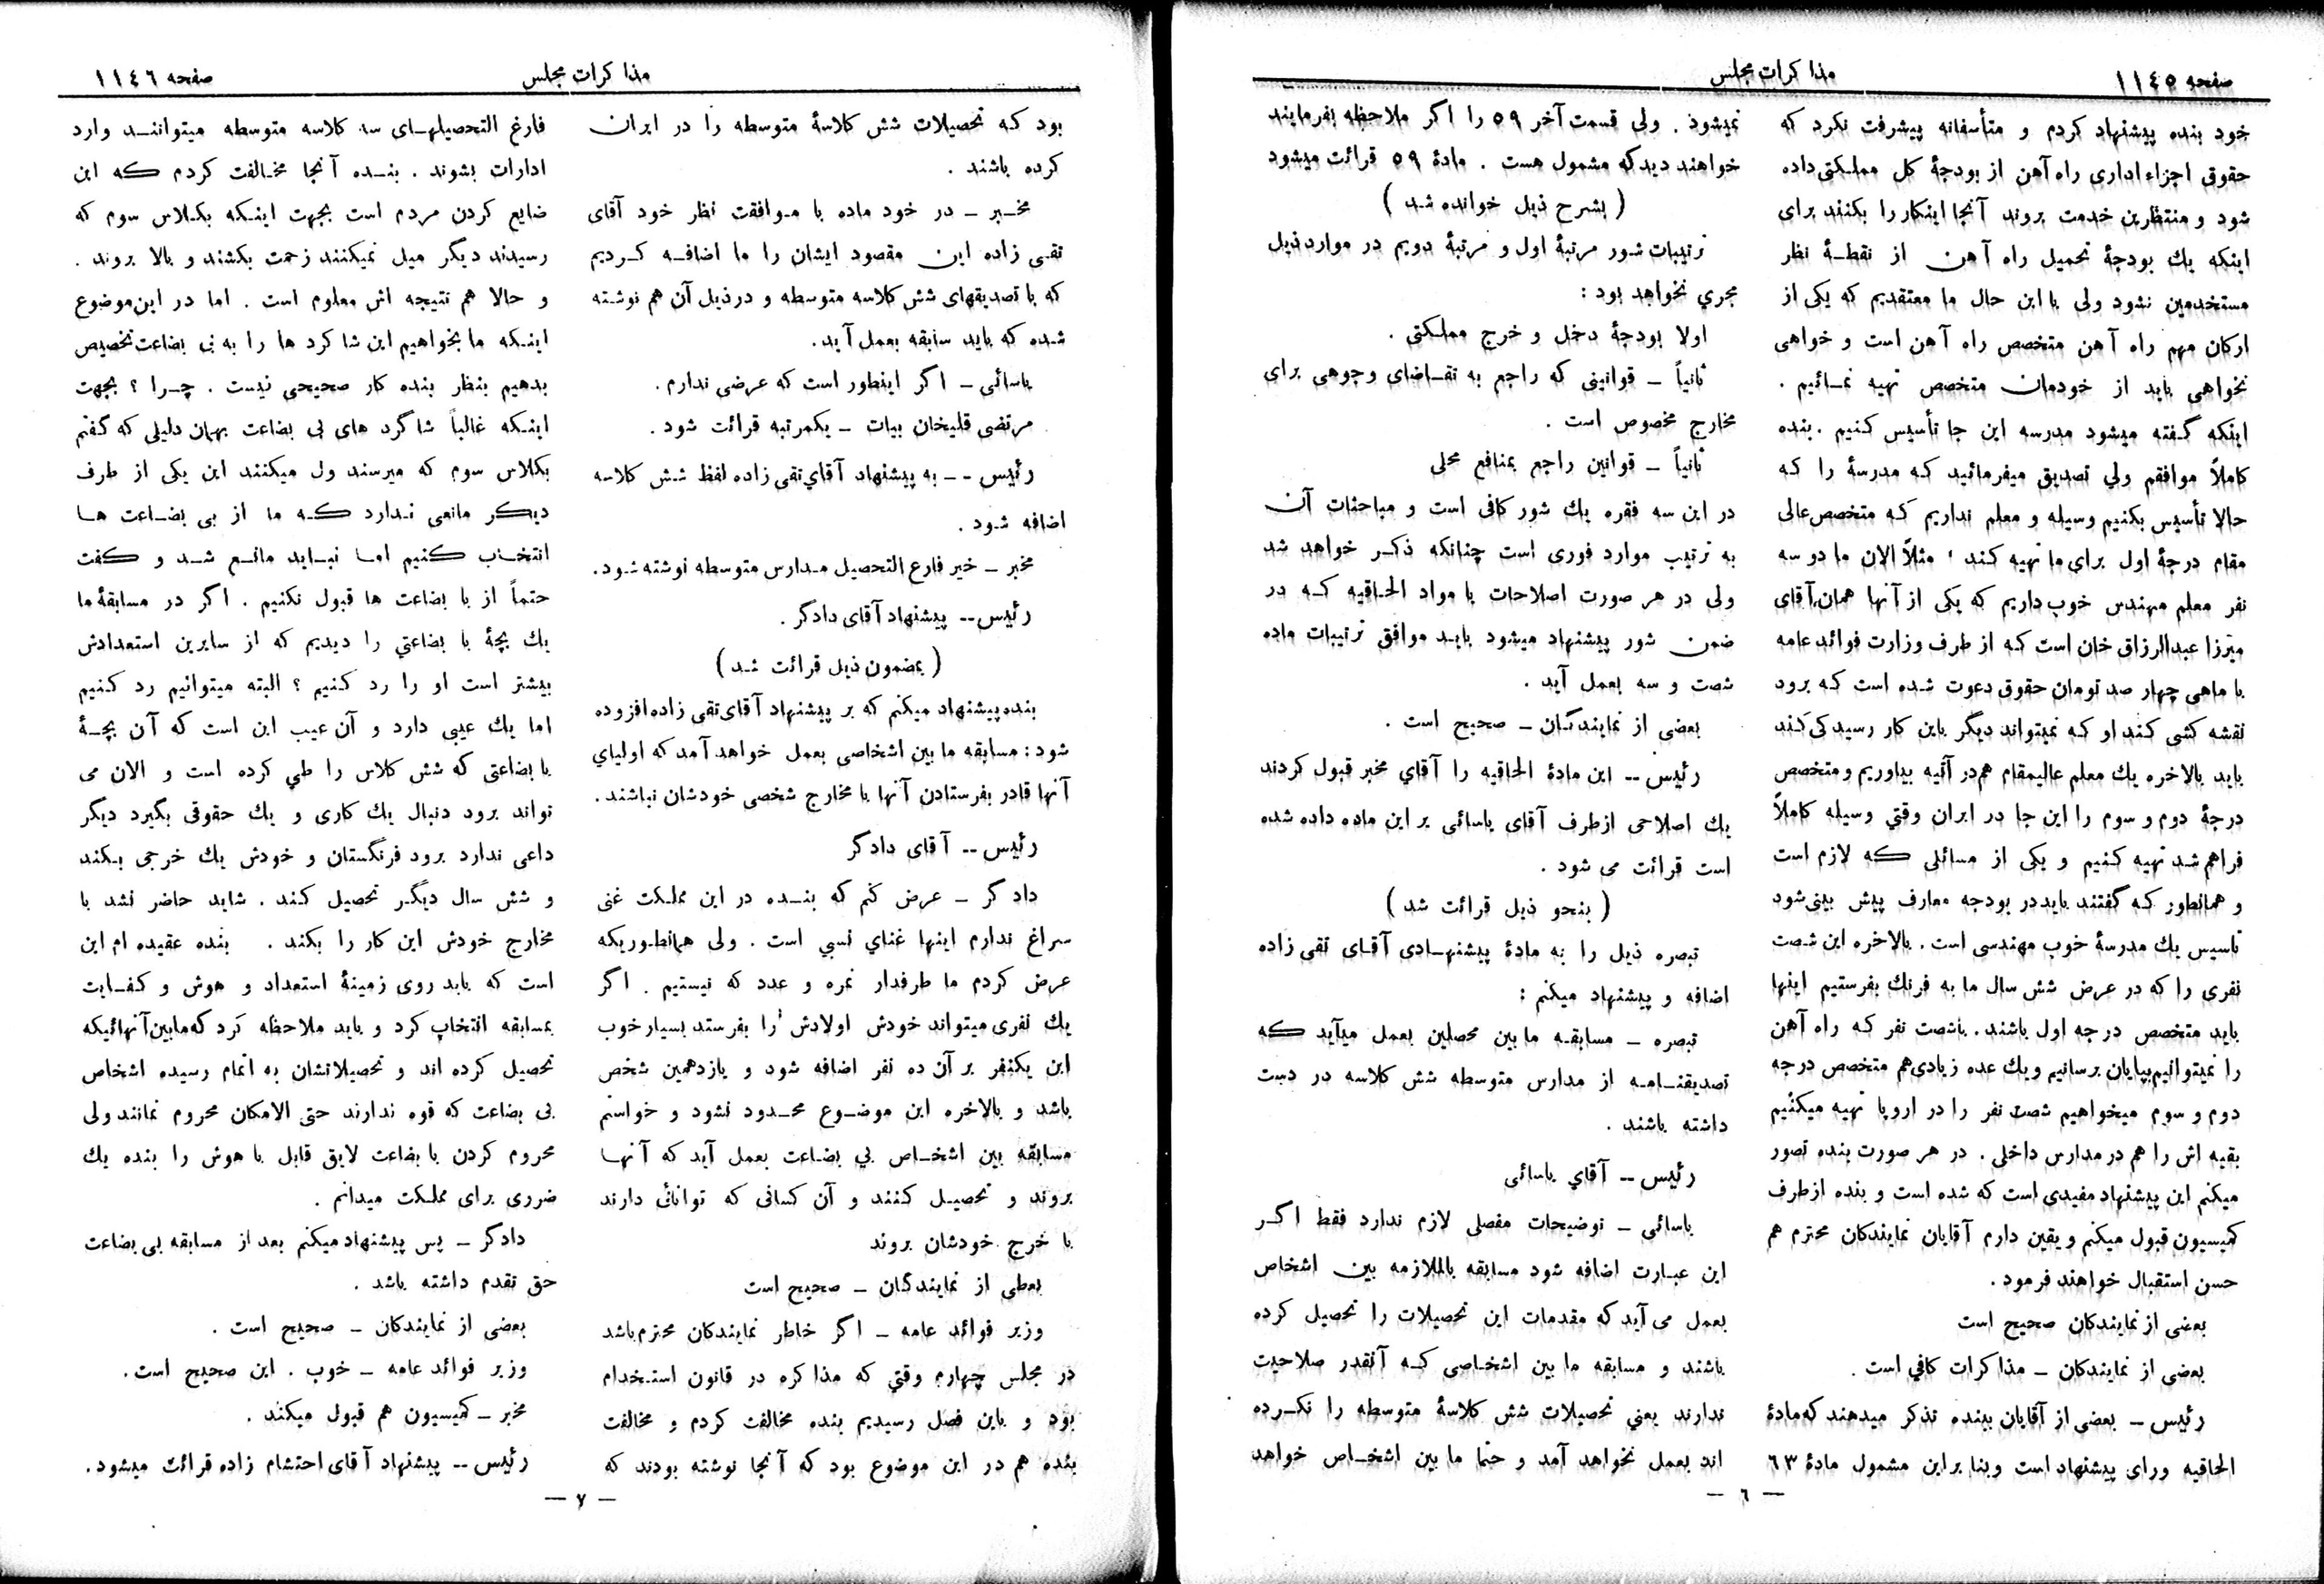 صفحه ١١٤٥
مذاکرات مجلس
خود بنده پیشنهاد کردم و متأسفانه پیشرفت نکرد که
حقوق اجزاء اداری راه آهن از بودجهٔ کل مملکتی داده
شود و منتظرین خدمت بروند آنجا اینکار را بکنند برای
اینکه یك بودجهٔ تحمیل راه آهن از نقطـهٔ نظر
مستخدمین نشود ولی با این حال ما معتقدیم که یکی از
ارکان مهم راه آهن متخصص راه آهن است و خواهی
نخواهی باید از خودمان متخصص تهیه نمـائیم .
اینکه گفته میشود مدرسه این جا تأسیس کنیم . بنده
کاملاً موافقم ولي تصدیق میفرمائید کـه مدرسهٔ را کـه
حالا تأسیس بکنیم وسیله و معلم نداریم کـه متخصص عالی
مقام درجهٔ اول برای ما تهیه کـند ؛ مثلاً الان ما دو سه
نفر معلم مهندس خوب داریم که یکی از آنها همان آقای
میرزا عبدالرزاق خان است کـه از طرف وزارت فوائد عامه
با ماهی چهار صد تومان حقوق دعوت شده است کـه برود
نقشه کشی کـند او کـه نمیتواند دیگر باین کار رسیدگی کـند
باید بالاخره یك معلم عالیمقام هم در آتیه بیاوریم و متخصص
درجهٔ دوم و سوم را این جا در ایران وقتي وسیله کاملاً
فراهم شد تهیه کـنیم و یکی از مسائلی کـه لازم است
و همانطور کـه گفتند باید در بودجه معارف پیش بینی شود
تاسیس یك مدرسهٔ خوب مهندسی است . بالاخره این شصت
نفری را که در عرض شش سال ما به فرنك بفرستیم اینها
باید متخصص درجه اول باشند . باشصت نفر کـه راه آهن
را نمیتوانیم بپایان برسانیم و یك عده زیادی هم متخصص درجه
دوم و سوم میخواهیم شصت نفر را در اروپا تهیه میکنیم
بقیه اش را هم در مدارس داخلی . در هر صورت بنده تصور
میکنم این پیشنهاد مفیدی است که شده است و بنده از طرف
کمیسیون قبول میکنم و یقین دارم آقایان نمایندکان محترم هم
حسن استقبال خواهند فرمود .
بعضی از نمایندکان صحیح است
بعضی از نمایندکان ـ مذاکرات کافي است .
رئیس ـ بعضی از آقایان ببنده تذکر میدهند که مادهٔ
الحاقیه ورای پیشنهاد است و بنا براین مشمول مادهٔ ٦٣
نمیشود . ولی قسمت آخر ٥٩ را اگر ملاحظه بفرمایند
خواهند دید که مشمول هست . مادهٔ ٥٩ قرائت میشود
( بشرح ذیل خوانده شد )
ترتیبات شور مرتبهٔ اول و مرتبهٔ دویم در موارد ذیل
مجري نخواهد بود :
اولا بودجهٔ دخل و خرج مملکتی .
ثانیاً ـ قوانینی که راجع به تقـاضای وجوهی برای
مخارج مخصوص است .
ثانیاً ـ قوانین راجع بمنافع محلی
در این سه فقره یك شور کافی است و مباحثات آن
به ترتیب موارد فوری است چنانکه ذکـر خواهد شد
ولی در هر صورت اصلاحات یا مواد الحـاقیه کـه در
ضمن شور پیشنهاد میشود بایـد موافق ترتیبات ماده
شصت و سه بعمل آید .
بعضی از نمایندگـان ـ صحیح است .
رئیس -- این مادهٔ الحاقیه را آقاي مخبر قبول کردند
یك اصلاحی ازطرف آقای یاسائی بر این ماده داده شده
است قرائت می شود .
( بنحو ذیل قرائت شد )
تبصره ذیل را به مادهٔ پیشنهـادی آقـای تقی زاده
اضافه و پیشنهاد میکنم :
تبصره ـ مسابقـه ما بین محصلین بعمل میآید کـه
تصدیقنـامـه از مدارس متوسطه شش کلاسه در دست
داشته باشند .
رئیس -- آقاي یاسائی
یاسائی ـ توضیحات مفصلی لازم ندارد فقط اگـر
این عبـارت اضافه شود مسابقه بالملازمه بین اشخاص
بعمل می آید که مقدمات این تحصیلات را تحصیل کرده
باشند و مسابقه ما بین اشخـاصی کـه آنقدر صلاحیت
ندارند یعني تحصیلات شش کلاسهٔ متوسطه را نکـرده
اند بعمل نخواهد آمد و حتما ما بین اشخـاص خواهد
— ٦ —
مذاکرات مجلس
صفحه ١١٤٦
بود کـه تحصیلات شش کلاسهٔ متوسطه را در ایران
کرده باشند .
مخـبر ـ در خود ماده با موافقت نظر خود آقای
تقی زاده این مقصود ایشان را ما اضافـه کـردیم
که با تصدیقهای شش کلاسه متوسطه و در ذیل آن هم نوشته
شده که باید سابقه بعمل آید.
یاسائی ـ اگر اینطور است که عرضی ندارم .
مرتضی قلیخان بیات ـ یکمرتبه قرائت شود .
رئیس -- به پیشنهاد آقاي تقی زاده لفظ شش کلاسه
اضافه شود .
مخبر ـ خیر فارغ التحصیل مـدارس متوسطه نوشته شود.
رئیس-- پیشنهاد آقای دادگر .
( بمضمون ذیل قرائت شد )
بنده پیشنهاد میکنم که بر پیشنهاد آقای تقی زاده افزوده
شود : مسابقه ما بین اشخاصی بعمل خواهد آمد که اولیاي
آنها قادر بفرستادن آنها با مخارج شخصی خودشان نباشند .
رئیس -- آقای دادگر
دادگر ـ عرض کنم که بنـده در این مملکت غنی
سراغ ندارم اینها غنای نسبی است . ولی همانطـوریکه
عرض کردم ما طرفدار نمره و عدد که نیستیم . اگر
یك نفری میتواند خودش اولادش را بفرستد بسیار خوب
این یکنفر بر آن ده نفر اضافه شود و یازدهمین شخص
باشد و بالاخره این موضـوع محـدود نشود و خواستم
مسابقه بین اشخـاص بي بضاعت بعمل آید که آنهـا
بروند و تحصیـل کـنند و آن کسانی که توانائی دارند
با خرج خودشان بروند
بعطی از نمایندگان ـ صحیح است
وزیر فوائد عامه ـ اگر خاطر نمایندکان محترم باشد
در مجلس چهارم وقتي که مذاکره در قانون استـخدام
بود و باین فصل رسیدیم بنده مخالفت کردم و مخالفت
بنده هم در این موضوع بود که آنجا نوشته بودند که
فارغ التحصیلهـای سه کلاسه متوسطه میتواننـد وارد
ادارات بشوند . بنـده آنجا مخـالفت کردم کـه این
ضایع کردن مردم است بجهت اینـکه بکـلاس سوم که
رسیدند دیگر میل نمیکنند زحمت بکشند و بالا بروند .
و حالا هم نتیجه اش معلوم است . اما در این موضوع
اینـکه ما بخواهیم این شاکرد ها را به بی بضاعت تخصیص
بدهیم بنظر بنده کار صحیحی نیست . چـرا ؟ بجهت
اینـکه غالباً شاگرد های بی بضاعت بهمان دلیلی که گفتم
بکلاس سوم که میرسند ول میکنند این یکی از طرف
دیـکر مانعی نـدارد کـه ما از بی بضـاعت هـا
انتخـاب کنیم امـا نبـاید مانـع شـد و کفت
حتماً از با بضاعت ها قبول نکنیم . اگر در مسابقهٔ ما
یك بچهٔ با بضاعتي را دیدیم که از سایرین استعدادش
بیشتر است او را رد کـنیم ؟ البته میتوانیم رد کـنیم
اما یك عیبی دارد و آن عیب این است که آن بچـهٔ
با بضاعتی که شش کلاس را طي کرده است و الان می
تواند برود دنبال یك کاری و یك حقوقی بگیرد دیگر
داعی ندارد برود فرنگستان و خودش یك خرجی بـکند
و شش سال دیگـر تحصیل کـند . شاید حاضر نشد با
مخارج خودش این کار را بکند . بنده عقیده ام این
است که باید روی زمینهٔ استعداد و هوش و کـفـایت
بمسابقه انتخاب کرد و باید ملاحظه کرد که مابین آنهائیکه
تحصیل کرده اند و تحصیلاتشان به اتمام رسیده اشخاص
بی بضاعت که قوه ندارند حتی الامکان محروم نمانند ولی
محروم کردن با بضاعت لایق قابل با هوش را بنده یك
ضرری برای مملـکت میدانم .
دادگر ـ پس پیشنهاد میکنم بعد از مسابقه بی بضاعت
حق تقدم داشته باشد .
بعضی از نمایندکان ـ صحیح است .
وزیر فوائد عامه ـ خوب . این صحیح است .
مخبر ـ کمیسیون هم قبول میکند .
رئیس -- پیشنهاد آقای احتشام زاده قرائت میشود .
— ٧ —